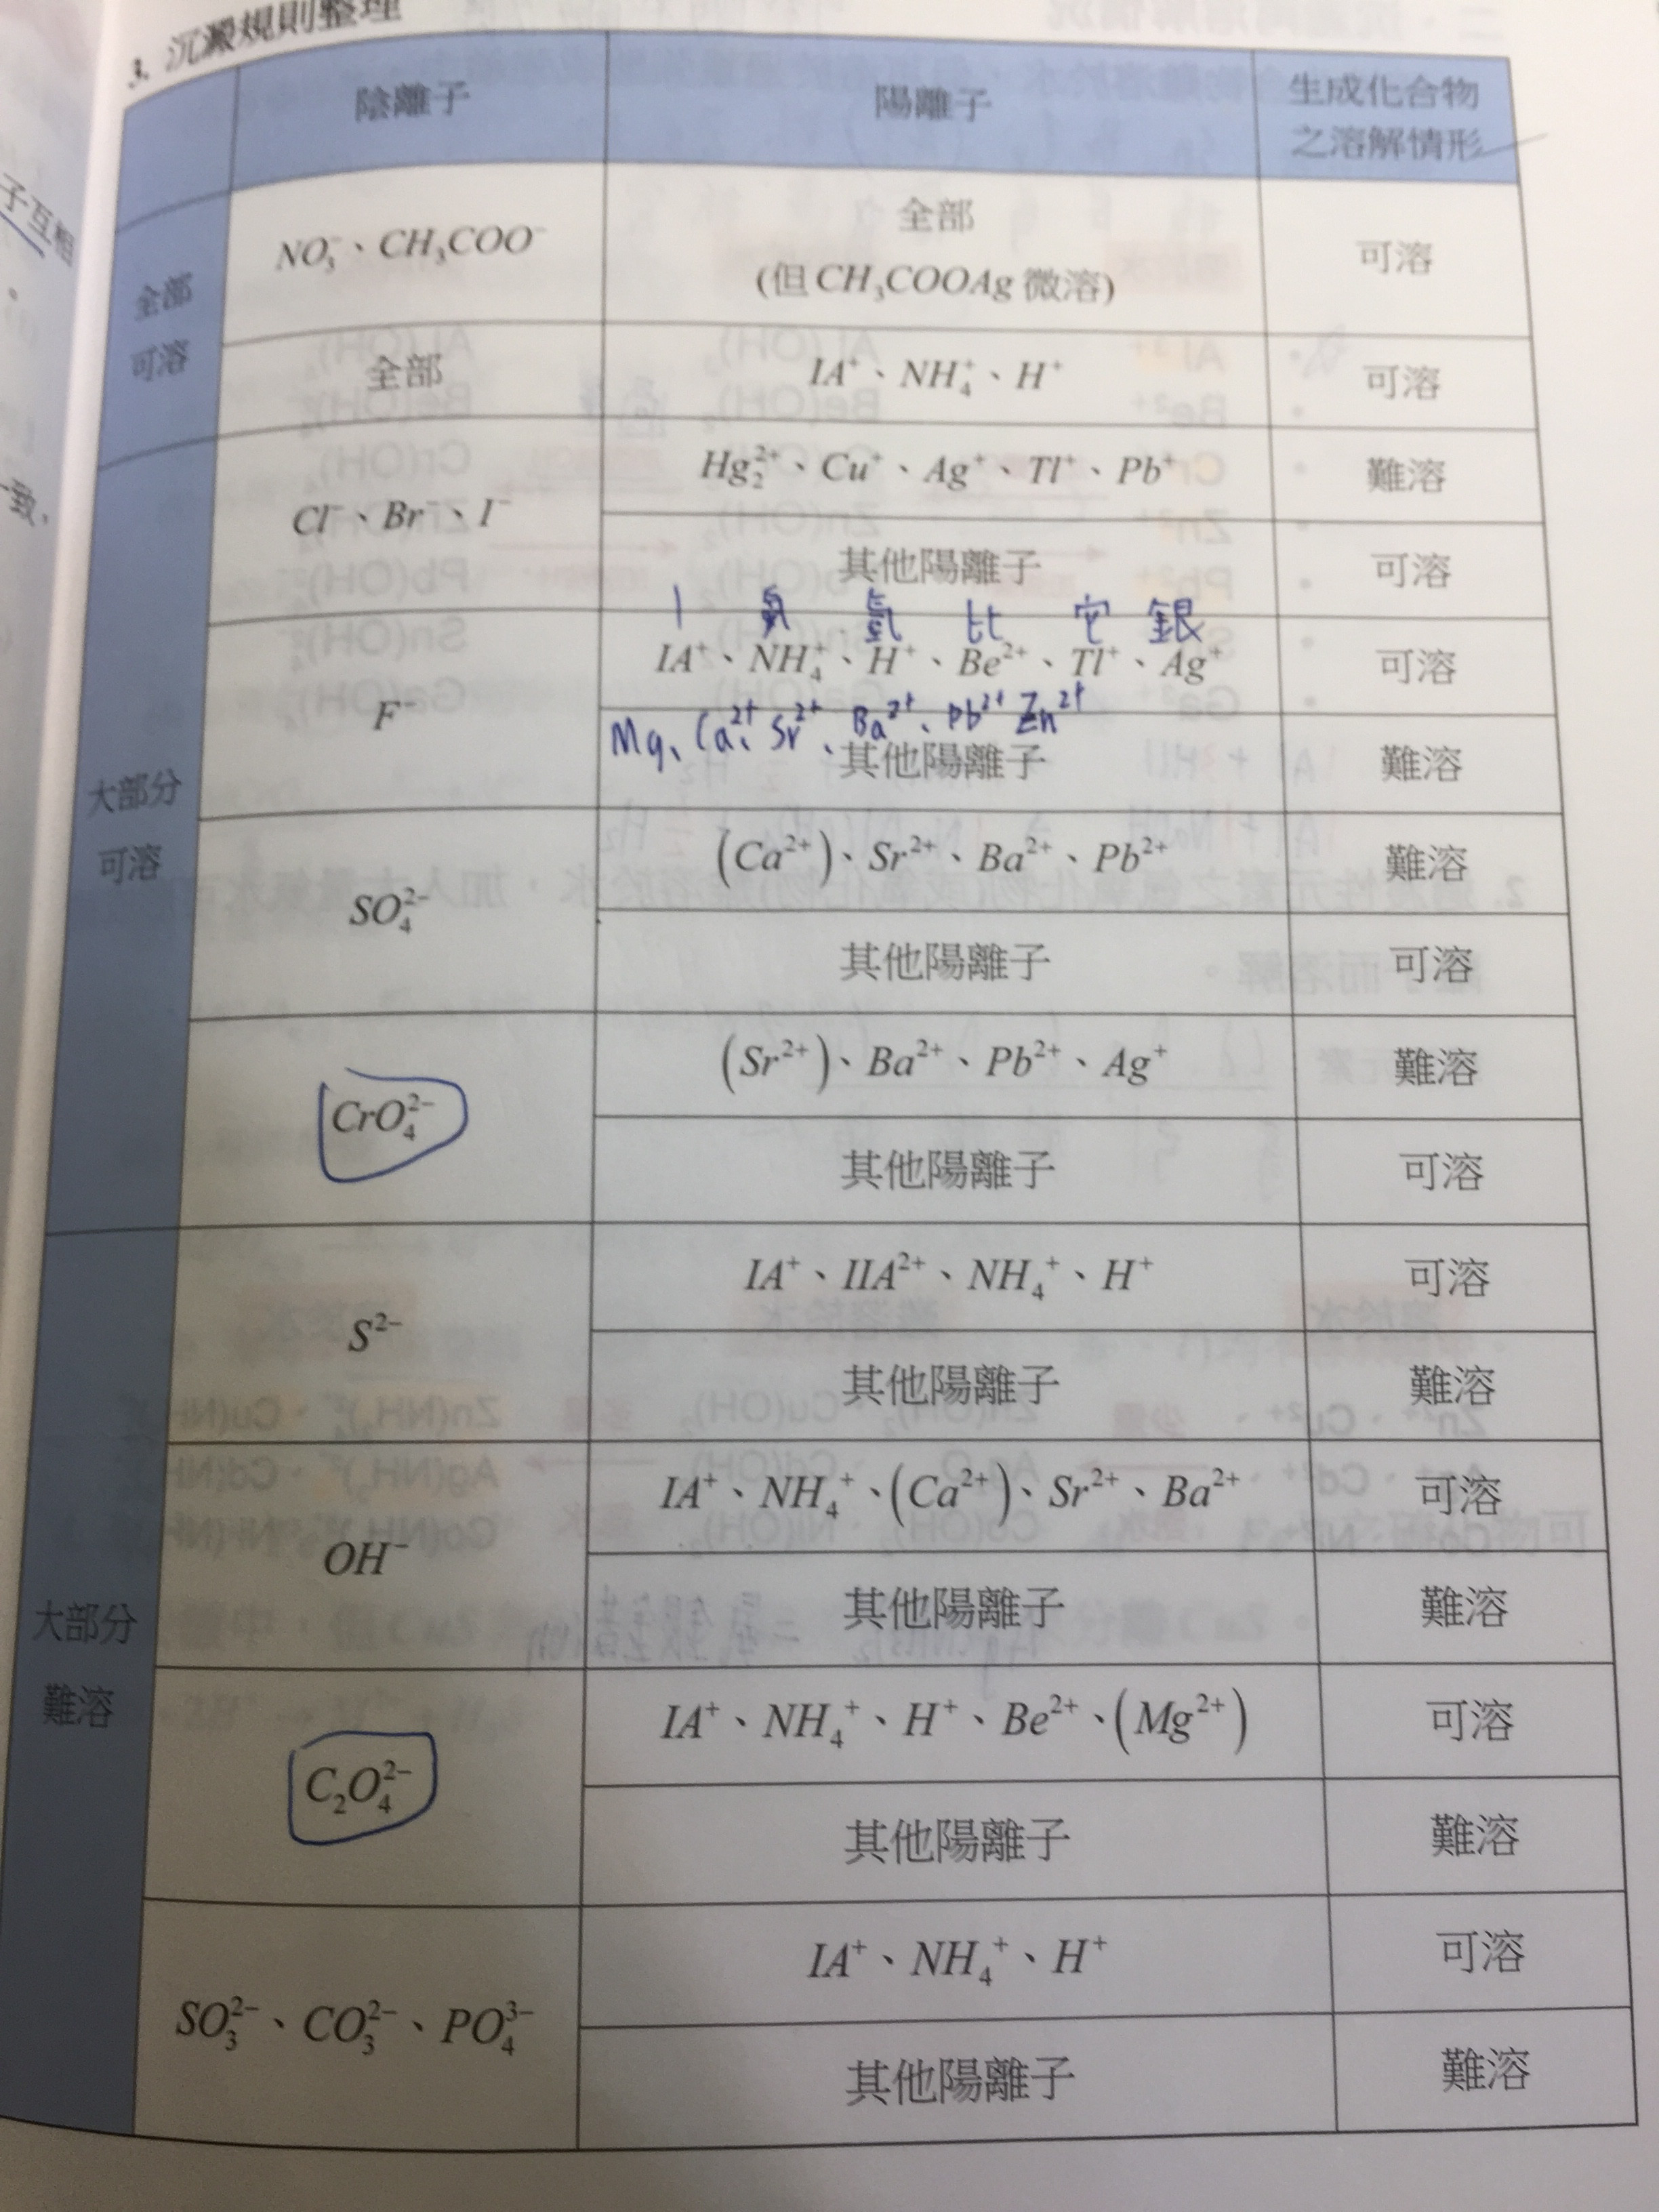 3. 沉澱規則整理
陰離子 陽離子 生成化合物
之溶解情形
全部
可溶
NO₃⁻、CH₃COO⁻
全部
(但CH₃COOAg微溶)
可溶
全部 IA⁺、NH₄⁺、H⁺ 可溶
大部分
可溶
Cl⁻、Br⁻、I⁻
Hg₂²⁺、Cu⁺、Ag⁺、Tl⁺、Pb⁺ 難溶
其他陽離子 可溶
F⁻
氫 比 它 銀
IA⁺、NH₄⁺、H⁺、Be²⁺、Tl⁺、Ag⁺ 可溶
Mg、Ca²⁺、Sr²⁺、Ba²⁺、Pb²⁺ Zn²⁺
其他陽離子 難溶
SO₄²⁻
(Ca²⁺)、Sr²⁺、Ba²⁺、Pb²⁺ 難溶
其他陽離子 可溶
CrO₄²⁻
(Sr²⁺)、Ba²⁺、Pb²⁺、Ag⁺ 難溶
其他陽離子 可溶
大部分
難溶
S²⁻
IA⁺、IIA²⁺、NH₄⁺、H⁺ 可溶
其他陽離子 難溶
OH⁻
IA⁺、NH₄⁺、(Ca²⁺)、Sr²⁺、Ba²⁺ 可溶
其他陽離子 難溶
C₂O₄²⁻
IA⁺、NH₄⁺、H⁺、Be²⁺、(Mg²⁺) 可溶
其他陽離子 難溶
SO₃²⁻、CO₃²⁻、PO₄³⁻
IA⁺、NH₄⁺、H⁺ 可溶
其他陽離子 難溶
子互相
一致，